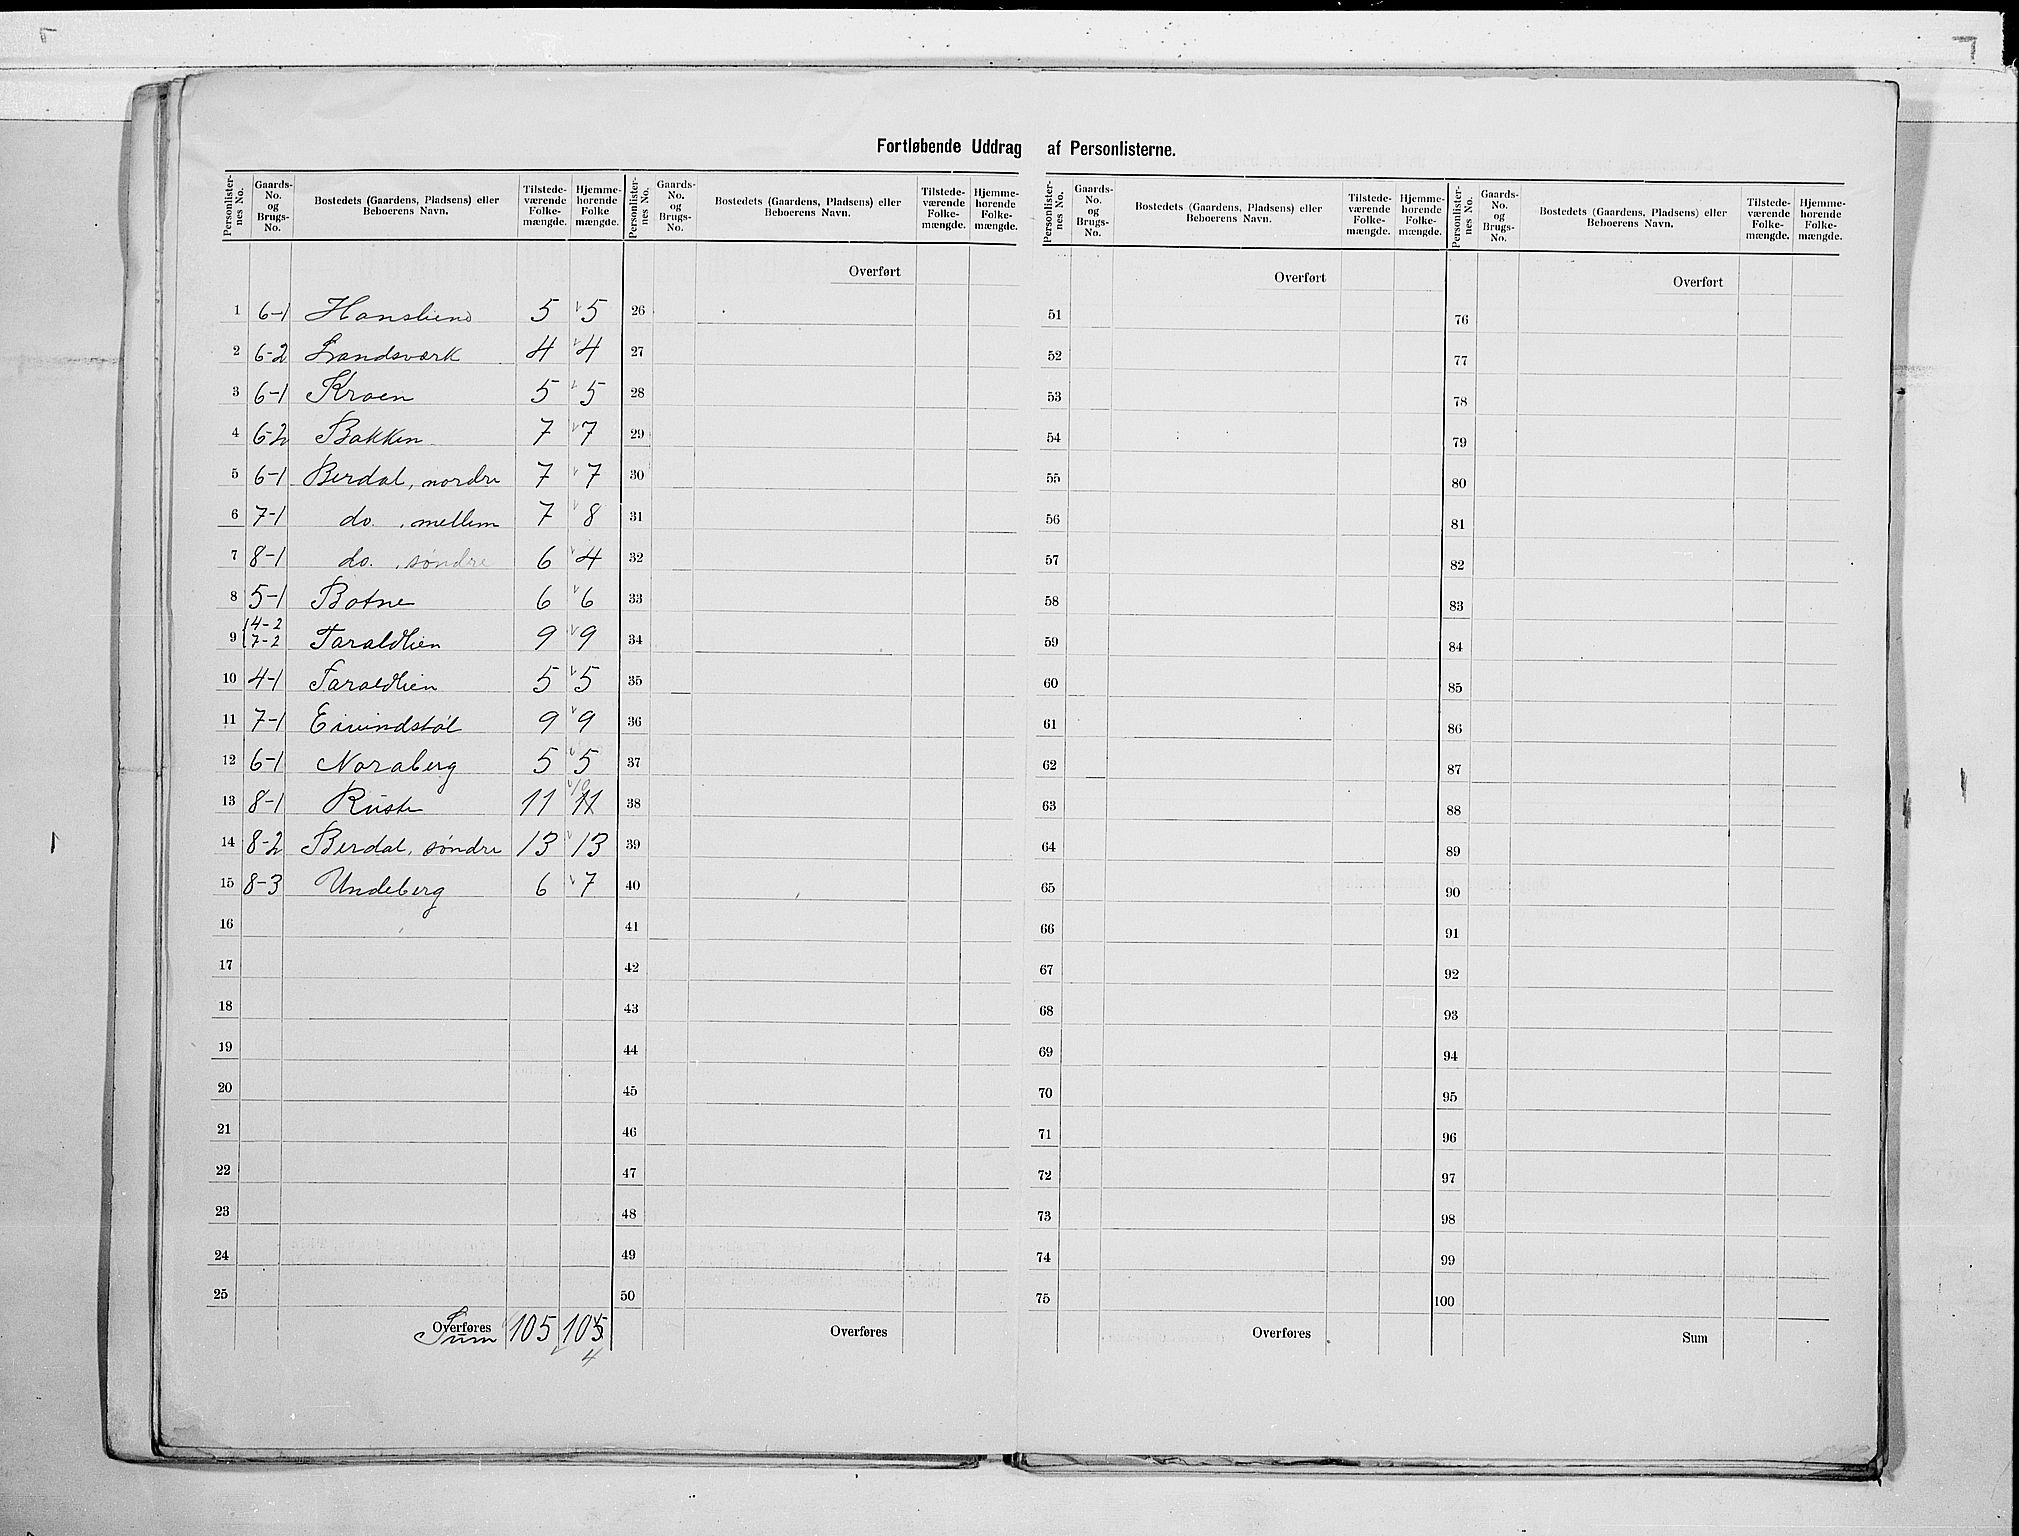 Fortløbende Uddrag af Personlisterne.
Personlister-nes No. Gaards-No. og Brugs-No. Bostedets (Gaardens, Pladsens) eller Beboerens Navn. Tilstede-værende Folke-mængde. Hjemme-hørende Folke mængde. Personlister-nes No. Gaards-No. og Brugs-No. Bostedets (Gaardens, Pladsens) eller Beboerens Navn. Tilstede-værende Folke-mængde. Hjemme-hørende Folke-mængde. Personlister-nes No. Gaards-No. og Brugs-No. Bostedets (Gaardens, Pladsens) eller Beboerens Navn. Tilstede-værende Folke-mængde. Hjemme-hørende Folke-mængde. Personlister-nes No. Gaards-No. og Brugs-No. Bostedets (Gaardens, Pladsens) eller Beboerens Navn. Tilstede-værende Folke-mængde. Hjemme-hørende Folke-mængde.
Overført Overført Overført
1 6-1 Hanslieno 5 5 26 51 76
2 6-2 Landsværk 4 4 27 52 77
3 6-1 Kroen 5 5 28 53 78
4 6-2 Bakken 7 7 29 54 79
5 6-1 Berdal, nordre 7 7 30 55 80
6 7-1 do. , mellem 7 8 31 56 81
7 8-1 do. , søndre 6 4 32 57 82
8 5-1 Botne 6 6 33 58 83
9 4-2 7-2 Taraldlien 9 9 34 59 84
10 4-1 Taraldlien 5 5 35 60 85
11 7-1 Eivindstøl 9 9 36 61 86
12 6-1 Noraberg 5 5 37 62 87
13 8-1 Ruste 11 11 10 38 63 88
14 8-2 Berdal, søndre 13 13 39 64 89
15 8-3 Undeberg 6 7 40 65 90
16 41 66 91
17 42 67 92
18 43 68 93
19 44 69 94
20 45 70 95
21 46 71 96
22 47 72 97
23 48 73 98
24 49 74 99
25 50 75 100
Overføres Sum 105 105 Overføres Overføres Sum
4